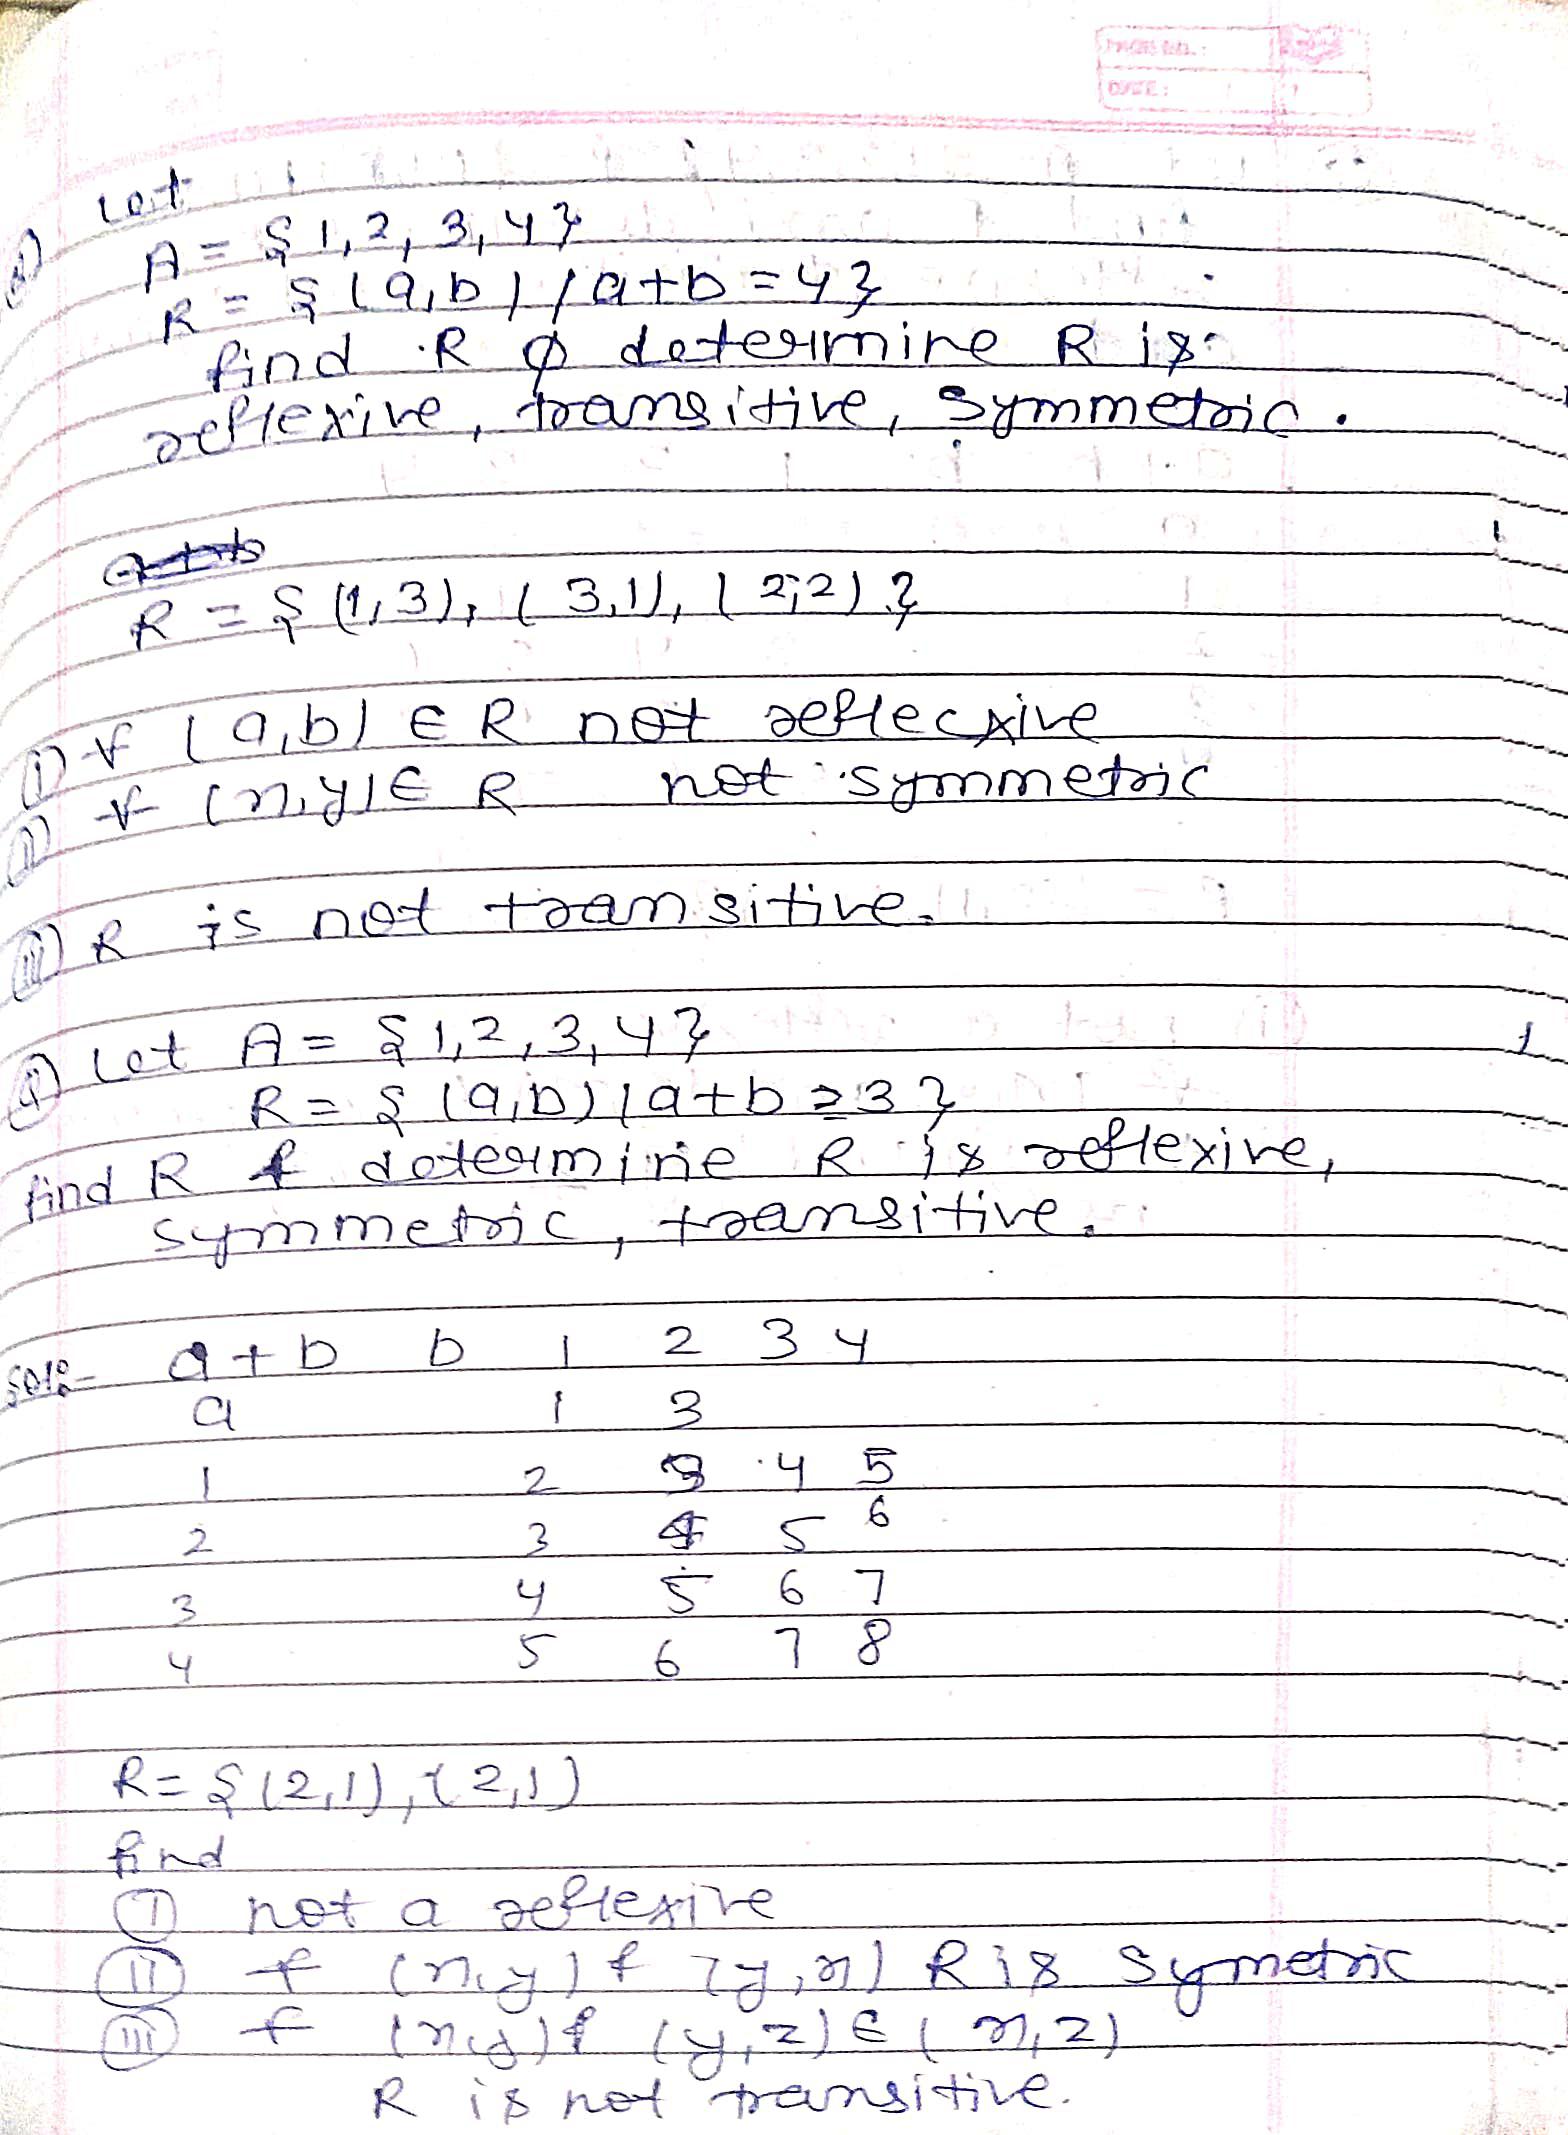 PAGE NO.:
DATE:
Let
A = {1, 2, 3, 4}
R = {(a,b) / a+b = 4}
find R & determine R is
reflexive, transitive, symmetric.
R = {(1,3), (3,1), (2,2)}
(i) ∀ (a,b) ∈ R not reflecxive
(ii) ∀ (x,y) ∈ R not symmetric
(iii) R is not transitive.
Let A = {1,2,3,4}
R = {(a,b) / a+b ≥ 3}
find R & determine R is reflexive,
symmetric, transitive.
Sol:- a+b b 1 2 3 4
a 1 3
1 2 3 4 5
2 3 4 5 6
3 4 5 6 7
4 5 6 7 8
R = {(2,1), (2,1)
find
(I) not a reflexive
(II) ∀ (x,y) & (y,x) R is Symetric
(III) ∀ (x,y) & (y,z) ∈ (x,z)
R is not transitive.